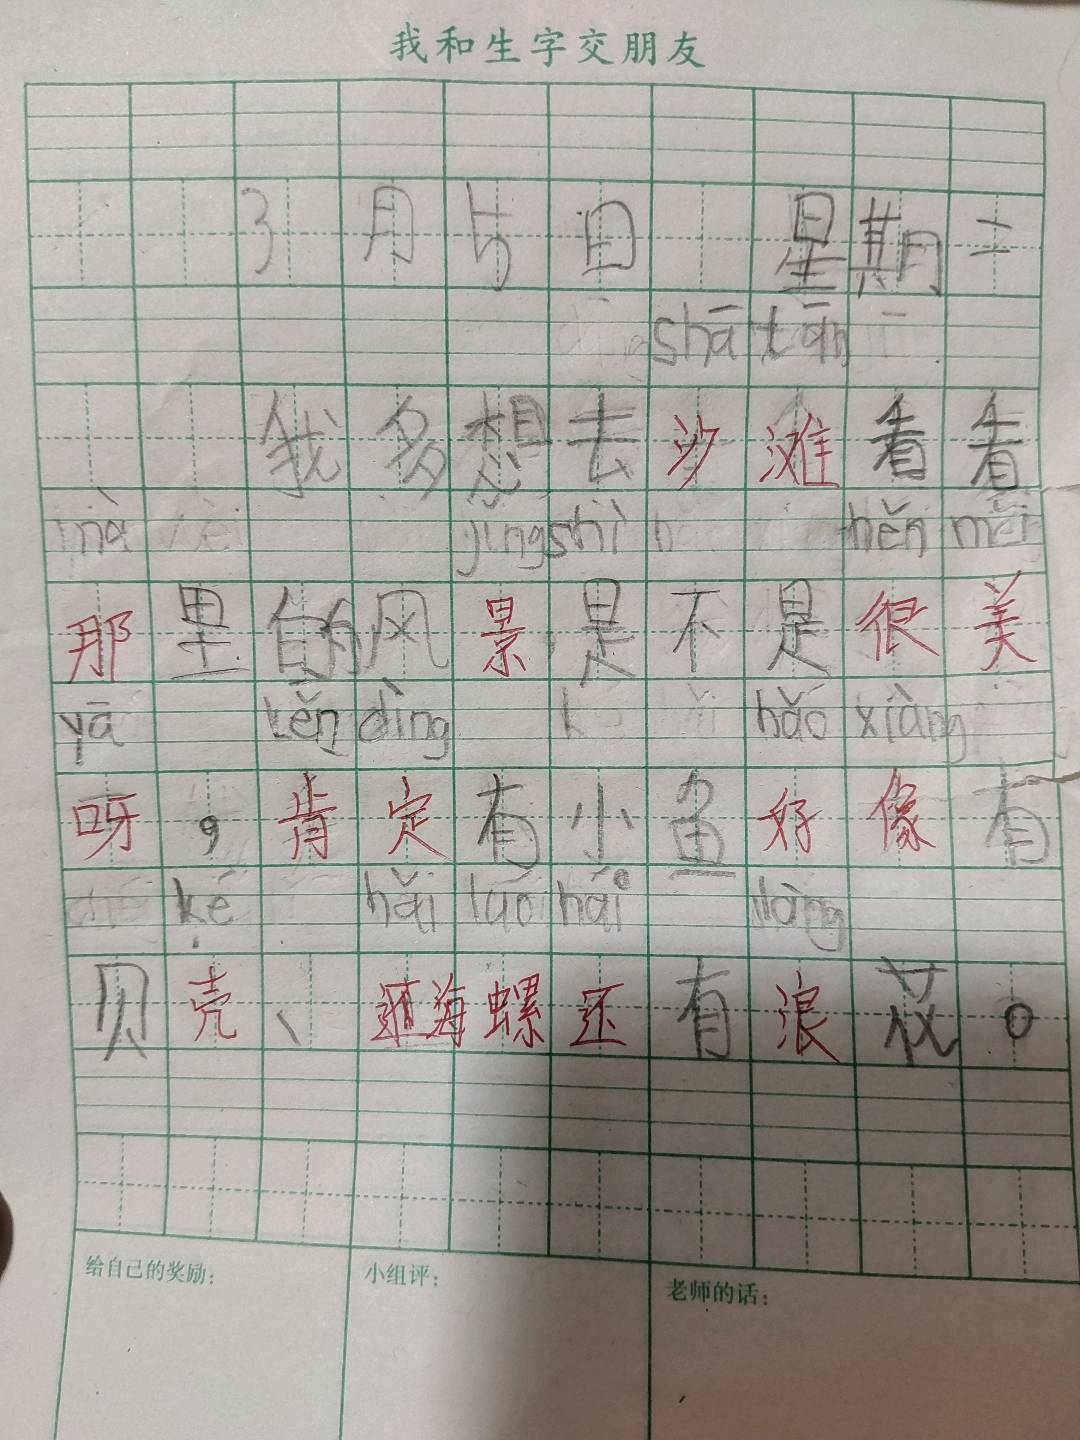 我和生字交朋友
3月5日 星期二
shā tān
我多想去沙滩看看
nà jǐng shì hěn měi
那里的风景是不是很美
yā kěn dìng hǎo xiàng
呀，肯定有小鱼好像有
ké hǎi luó hái làng
贝壳、海螺还有浪花。
给自己的奖励：
小组评：
老师的话：